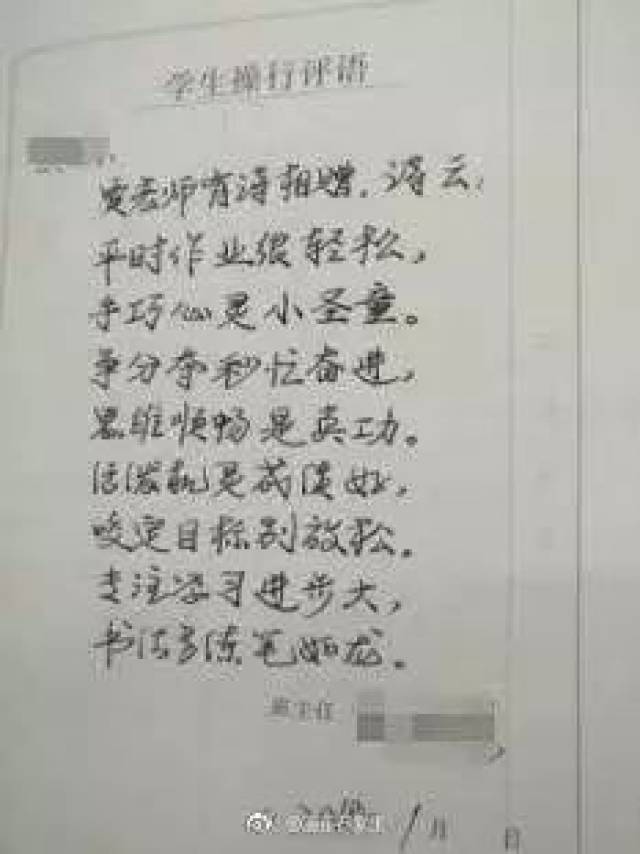 学生操行评语
老师有诗相赠，诗云：
平时作业很轻松，
手巧心灵小圣童。
争分夺秒忙奋进，
思维顺畅是真功。
活泼机灵
咬定目标别放松。
专注学习进步大，
书法多练笔如龙。
班主任
月 日